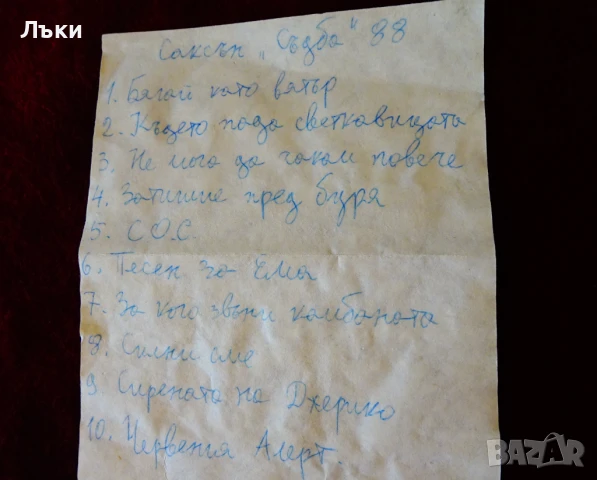 Лъки
Саксън „Съдба" 88
1. Бягай като вятър
2. Където пада светкавицата
3. Не мога да чакам повече
4. Затишие пред буря
5. С.О.С.
6. Песен за Ема
7. За кого звъни камбаната
8. Силни сме
9. Сирената на Джерико
10. Червения Алерт.
BAZAR